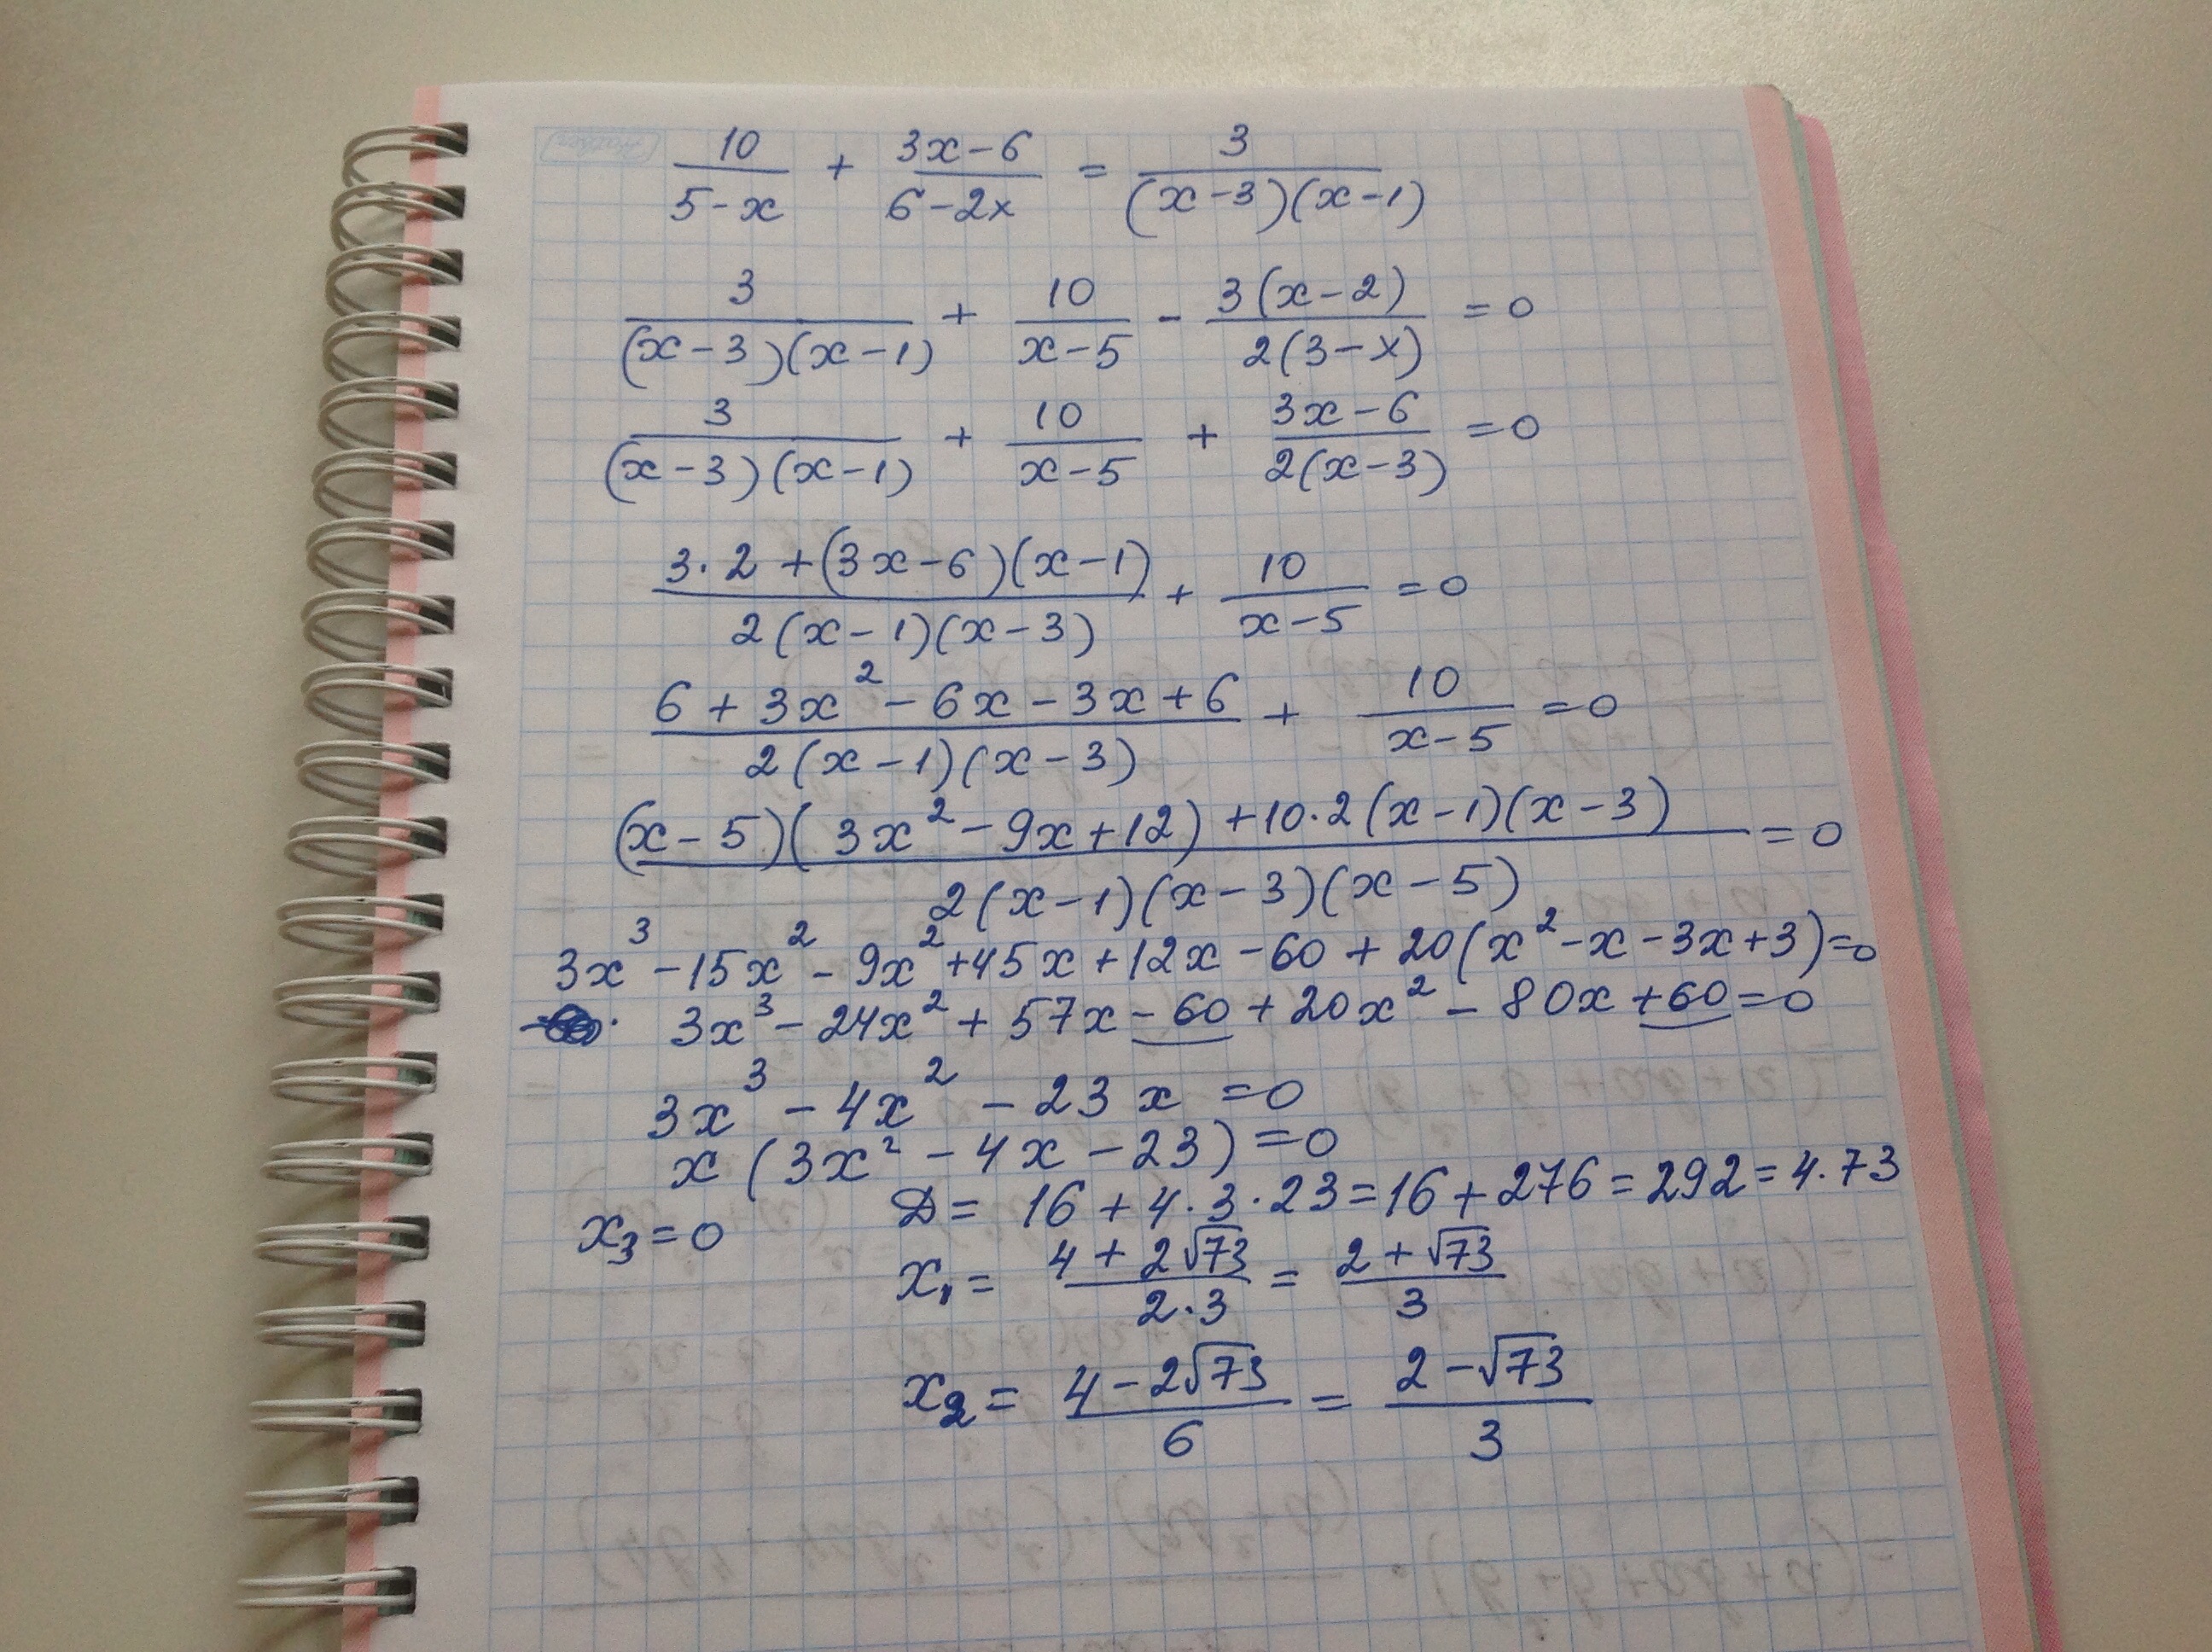 10/(5-x) + (3x-6)/(6-2x) = 3/((x-3)(x-1))
3/((x-3)(x-1)) + 10/(x-5) - 3(x-2)/(2(3-x)) = 0
3/((x-3)(x-1)) + 10/(x-5) + (3x-6)/(2(x-3)) = 0
(3·2+(3x-6)(x-1))/(2(x-1)(x-3)) + 10/(x-5) = 0
(6+3x²-6x-3x+6)/(2(x-1)(x-3)) + 10/(x-5) = 0
((x-5)(3x²-9x+12)+10·2(x-1)(x-3))/(2(x-1)(x-3)(x-5)) = 0
3x³-15x²-9x²+45x+12x-60+20(x²-x-3x+3)=0
3x³-24x²+57x-60+20x²-80x+60=0
3x³-4x²-23x=0
x(3x²-4x-23)=0
D=16+4·3·23=16+276=292=4·73
x₃=0
x₁=(4+2√73)/(2·3)=(2+√73)/3
x₂=(4-2√73)/6=(2-√73)/3